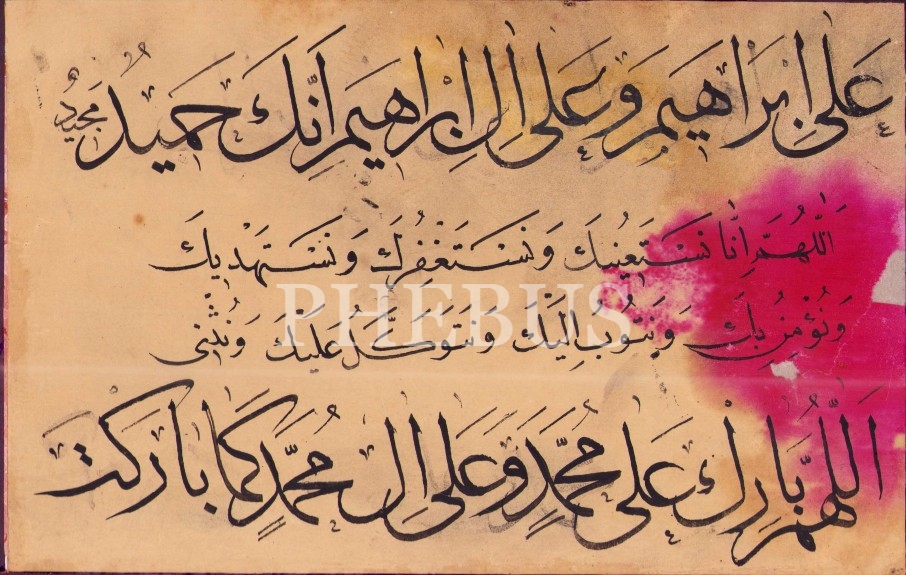 عَلىٰ اِبْرَاهٖيمَ وَعَلىٰ اٰلِ اِبْرَاهٖيمَ اِنَّكَ حَمٖيدٌ مَجٖيدٌ
اَللّٰهُمَّ اِنَّا نَسْتَعٖينُكَ وَنَسْتَغْفِرُكَ وَنَسْتَهْدٖيكَ
وَنُؤْمِنُ بِكَ وَنَتُوبُ اِلَيْكَ وَنَتَوَكَّلُ عَلَيْكَ وَنُثْنٖى
PHEBUS
اَللّٰهُمَّ بَارِكْ عَلىٰ مُحَمَّدٍ وَعَلىٰ اٰلِ مُحَمَّدٍ كَمَا بَارَكْتَ